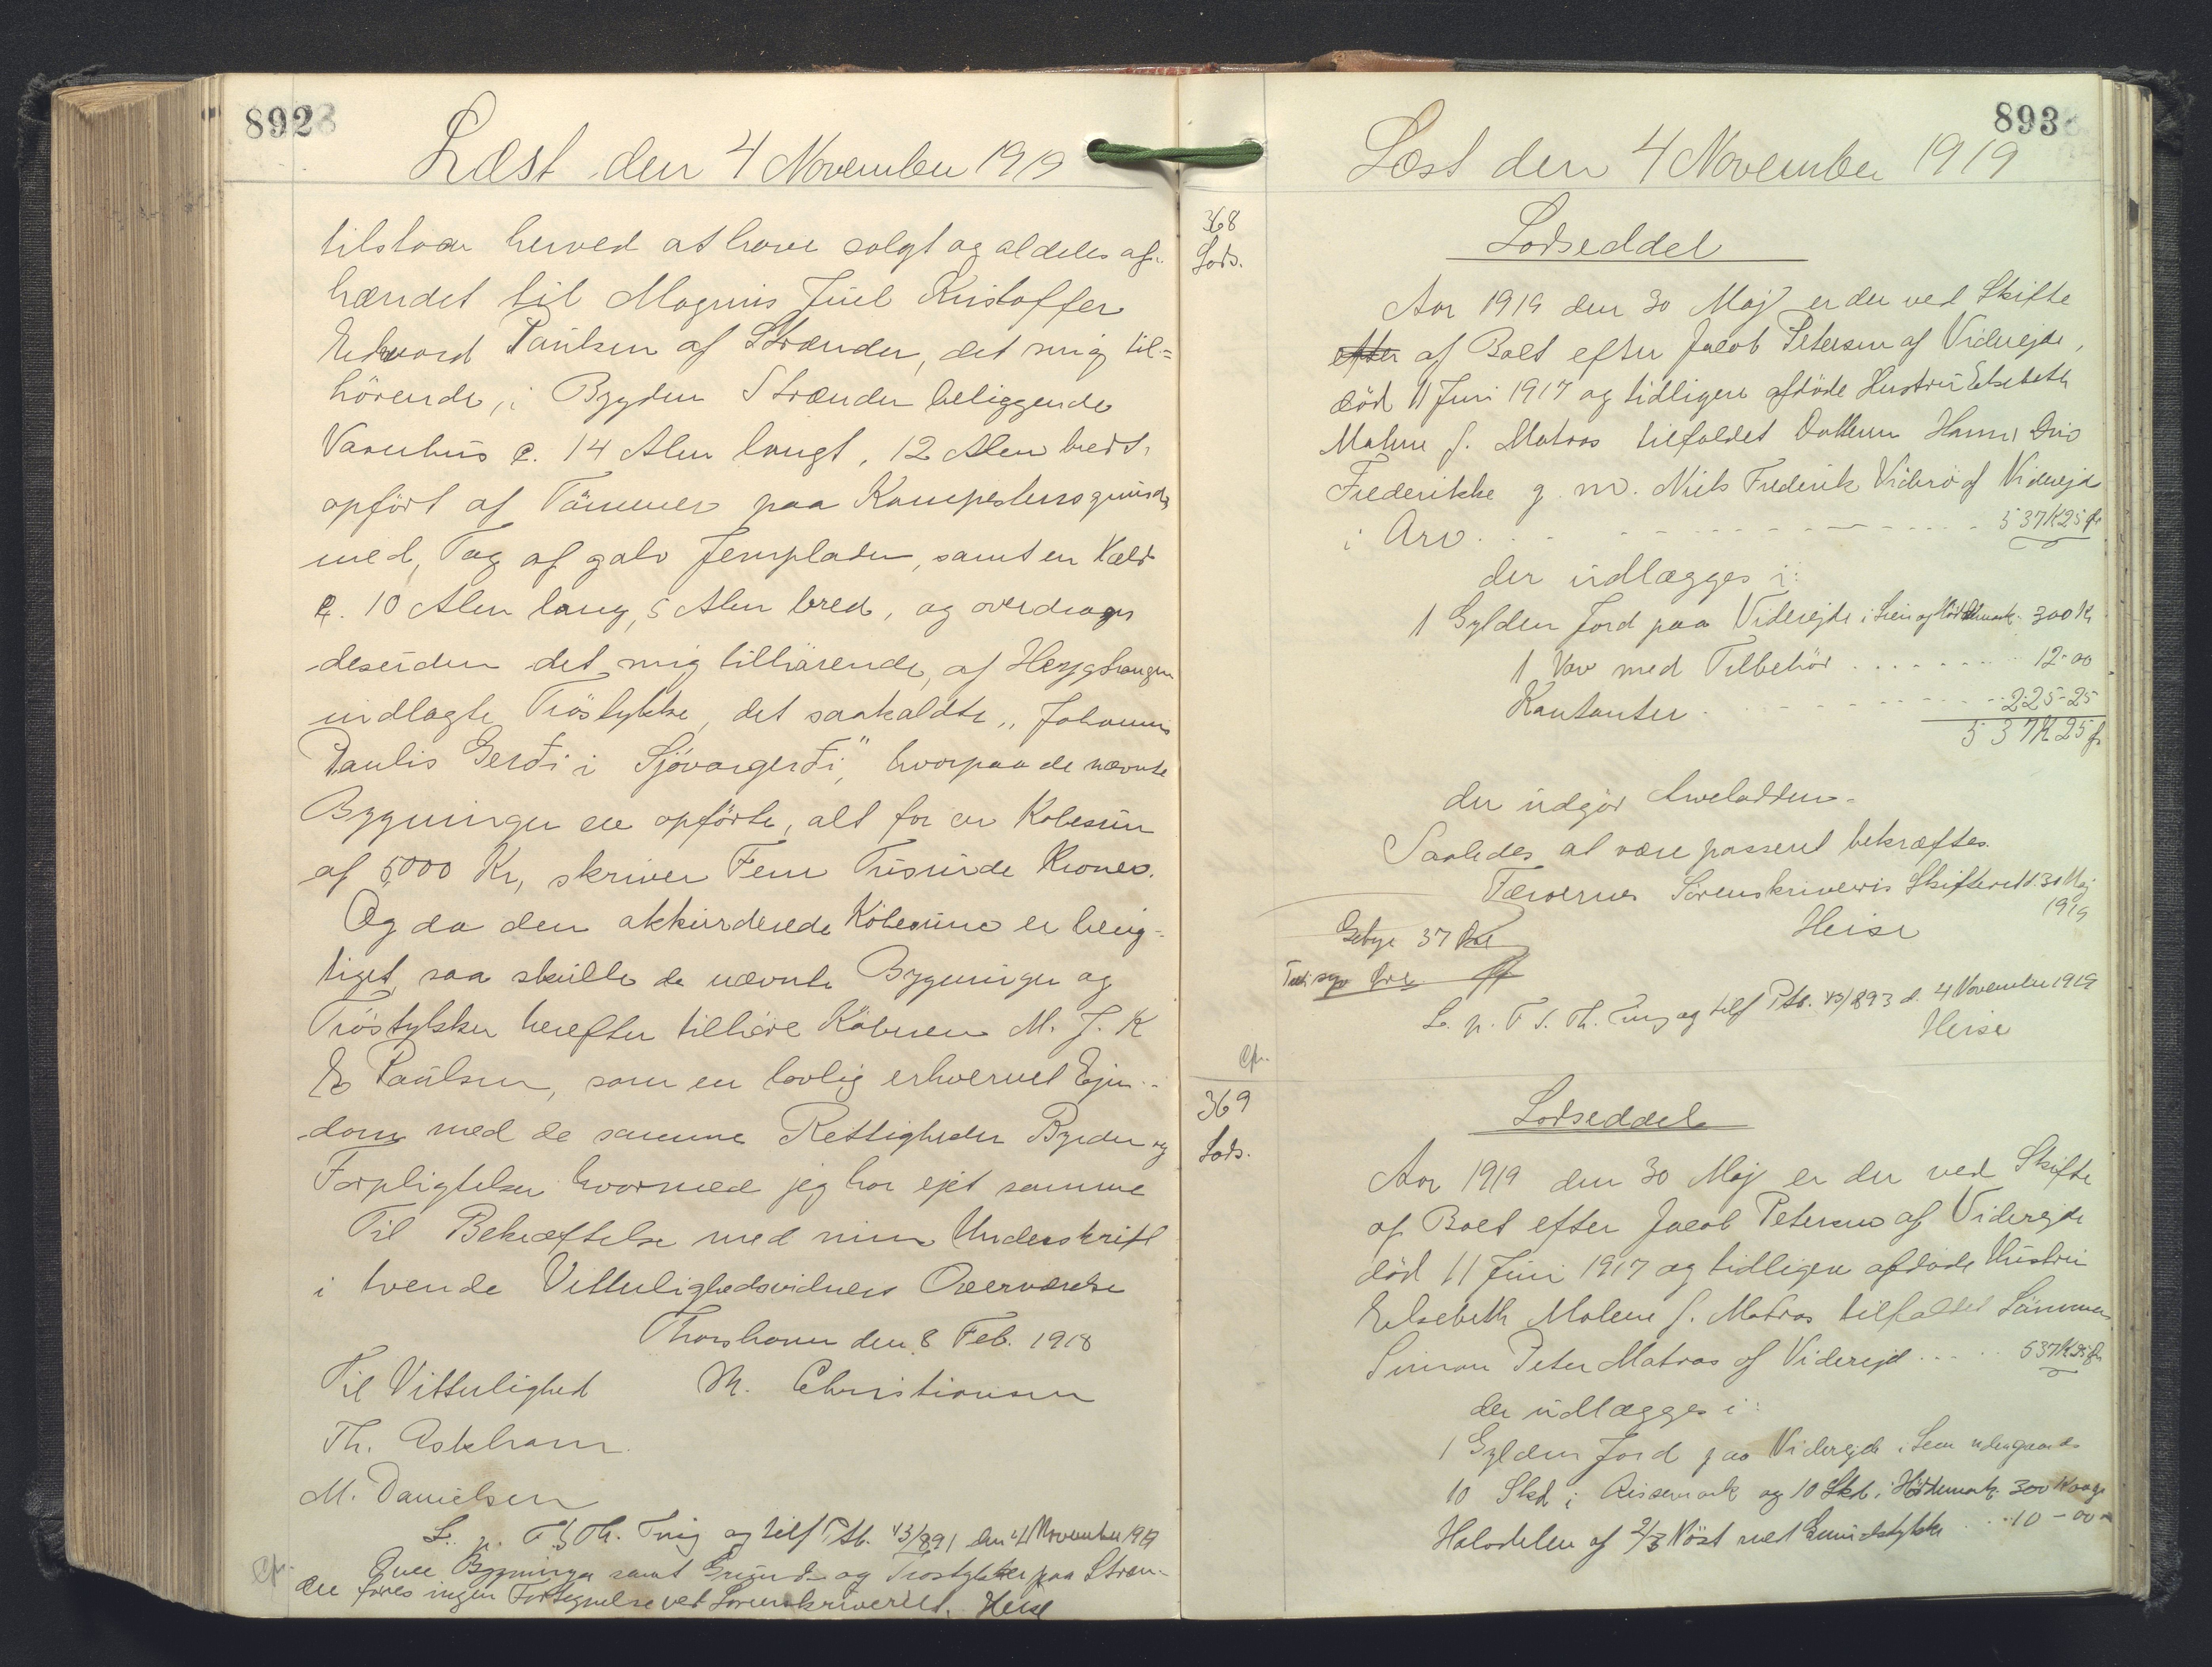 892
Læst den 4 November 1919
tilstaar herved at have solgt og aldeles af-
hændet til Magnus Juel Kristoffer
Edward Paulsen af Strænder, det mig til=
hörende, i Bygden Strænder beliggende
Vaanhus c. 14 Alen langt, 12 Alen bredt,
opfört af Tömmer paa Kampestensgrund
med Tag af galv Jernplader, samt en Kæld
c. 10 Alen lang, 5 Alen bred, og overdrages
desuden det mig tilhörende, af Heyghaugen
indlagte Tröstykke, det saakaldte „Johannis
Paulis Gerði i Sjóvargerði", hvorpaa de nævnte
Bygninger ere opförte, alt for en Köbesum
af 5000 Kr, skriver Fem Tusinde Kroner.
Og da den akkorderede Köbesum er berig-
tiget, saa skulle de nævnte Bygninger og
Tröstykker herefter tilhöre Köberen M. J. K
E Paulsen, som en lovlig erhvervet Ejen-
dom med de samme Rettigheder Byrder og
Forpligtelser hvormed jeg har ejet samme
Til Bekræftelse med min Underskrift
i tvende Vitterlighedsvidners Overværelse
Thorshavn den 8 Feb. 1918
Til Vitterlighed M. Christiansen
Th. Askham
M. Danielsen
L. p. F. S. Th. Ting og tilf Ptb. 43/891 den 4 November 1919
Over Bygninger samt Grund- og Tröstykker paa Stræn-
der føres ingen Fortegnelse ved Sorenskriveriet. Heise
cfr.
893
Læst den 4 November 1919
368
Lods.
Lodseddel
Aar 1919 den 30 Maj er der ved Skifte
efter af Boet efter Jacob Petersen af Viderejde,
död 11 Juni 1917 og tidligere afdöde Hustru Elsebeth
Malene f. Matras tilfaldet Datteren Hanne
Frederikke g. m. Niels Frederik Viderö af Viderejde
i Arv . . . 537 K 25 Ør
der udlægges i:
1 Gylden Jord paa Viderejde i Sein og Hödemark 300 K
1 Væv med Tilbehör . . . 12-00
Kontanter . . . 225-25
537 K 25 ø
der udgör Arvelodden.
Saaledes at være passeret bekræftes.
Færøernes Sorenskriveris Skifteret d. 30 Maj
1919
Heise
Gebyr 37 Øre
L. p. F. S. Th. Ting og tilf Ptb. 43/893 d. 4 November 1919
Heise
cfr.
369
Lods.
Lodseddel
Aar 1919 den 30 Maj er der ved Skifte
af Boet efter Jacob Petersen af Viderejde
död 11 Juni 1917 og tidligere afdöde Hustru
Elsebeth Malene f. Matras tilfaldet Sönnen
Simon Peter Matras af Viderejde . . . 537 K 25 Ør
der udlægges i:
1 Gylden Jord paa Viderejde i Sein udengaards
10 Skd i Risemark og 10 Skd. i Hödemark 300 K 00 ø
Halvdelen af 2/3 Nöst med Grundstykke . . 10-00